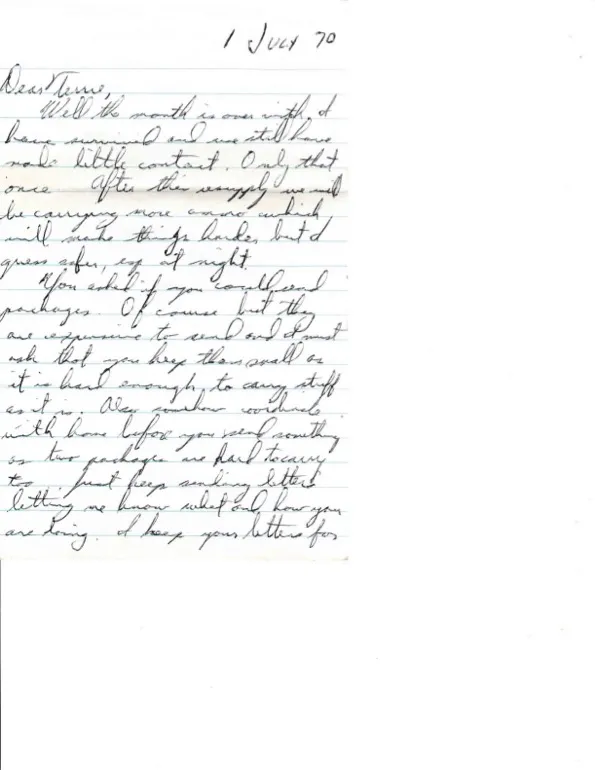 1 JULY 70
Dear Terrie,
Well the month is over with. I
have survived and we still have
made little contact. Only that
once. After this resupply we will
be carrying more ammo which
will make things harder, but I
guess safer, esp at night.
You asked if you could send
packages. Of course but they
are expensive to send and I must
ask that you keep them small as
it is hard enough to carry stuff
as it is. Also somehow coordinate
with home before you send something
as two packages are hard to carry
too. Just keep sending letters
letting me know what and how you
are doing. I keep your letters for